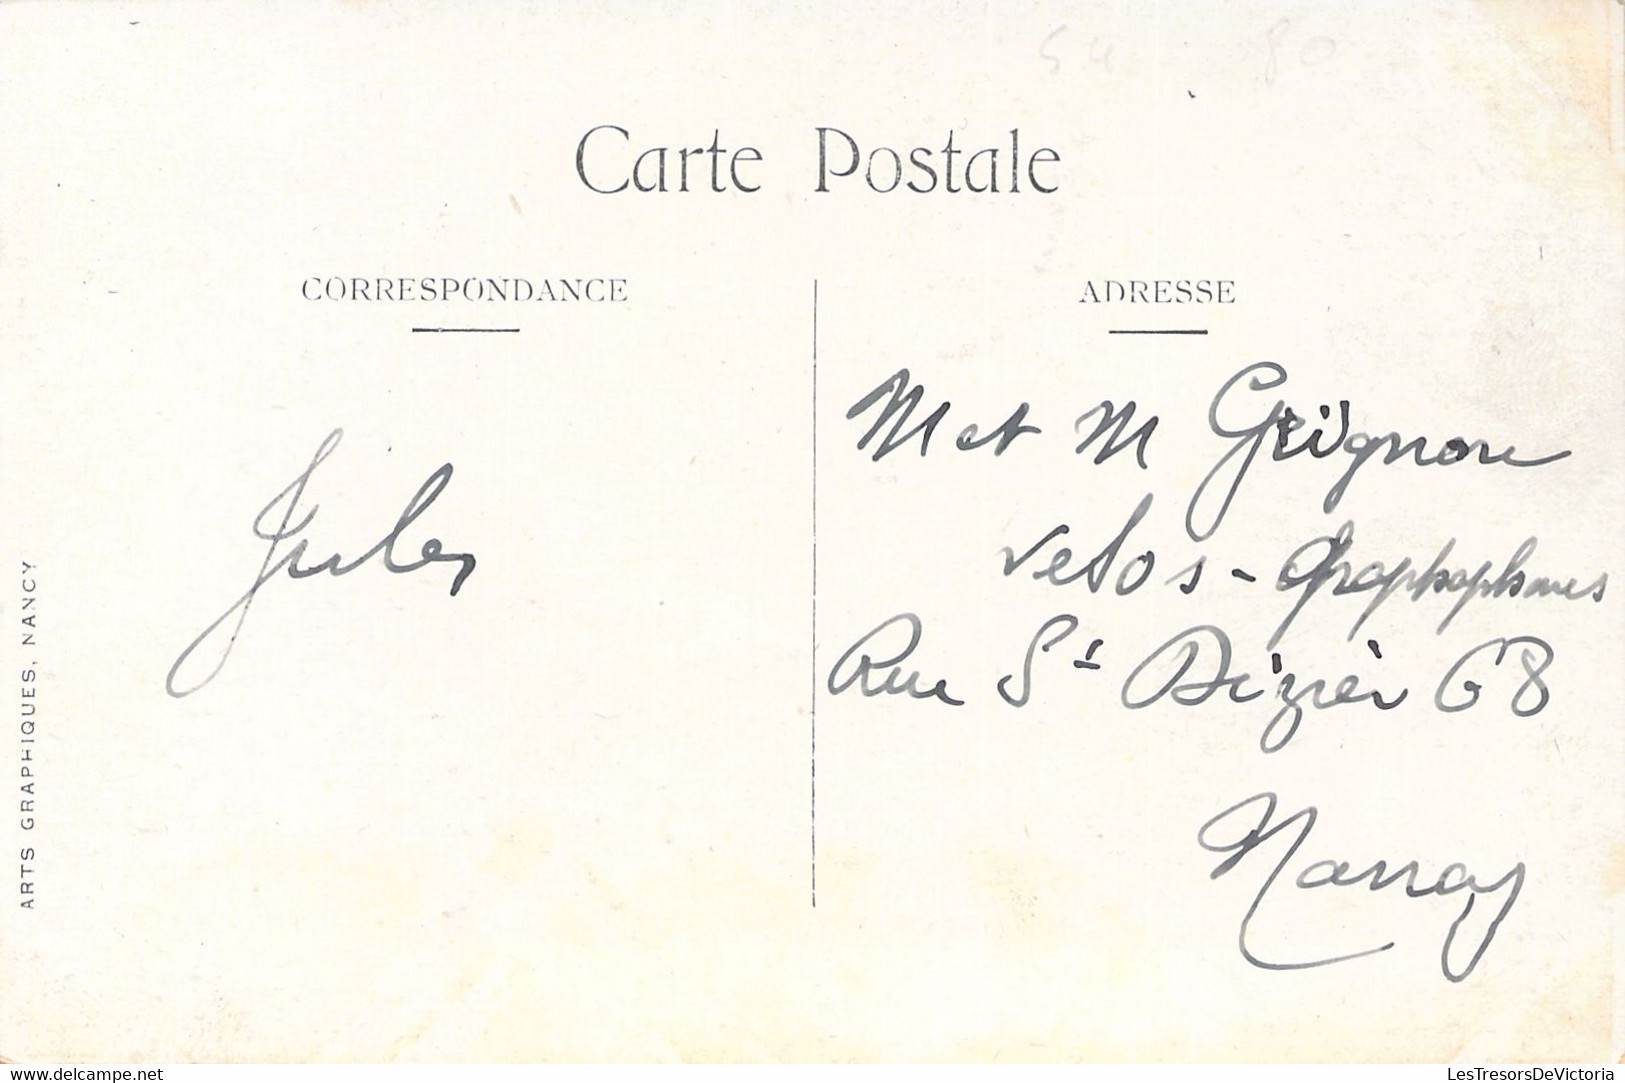 54 80
Carte Postale
CORRESPONDANCE
ADRESSE
Jules
M et M Grignon
velos - Graphophones
Rue St Dizier 68
Nancy
ARTS GRAPHIQUES, NANCY
www.delcampe.net
LesTresorsDeVictoria